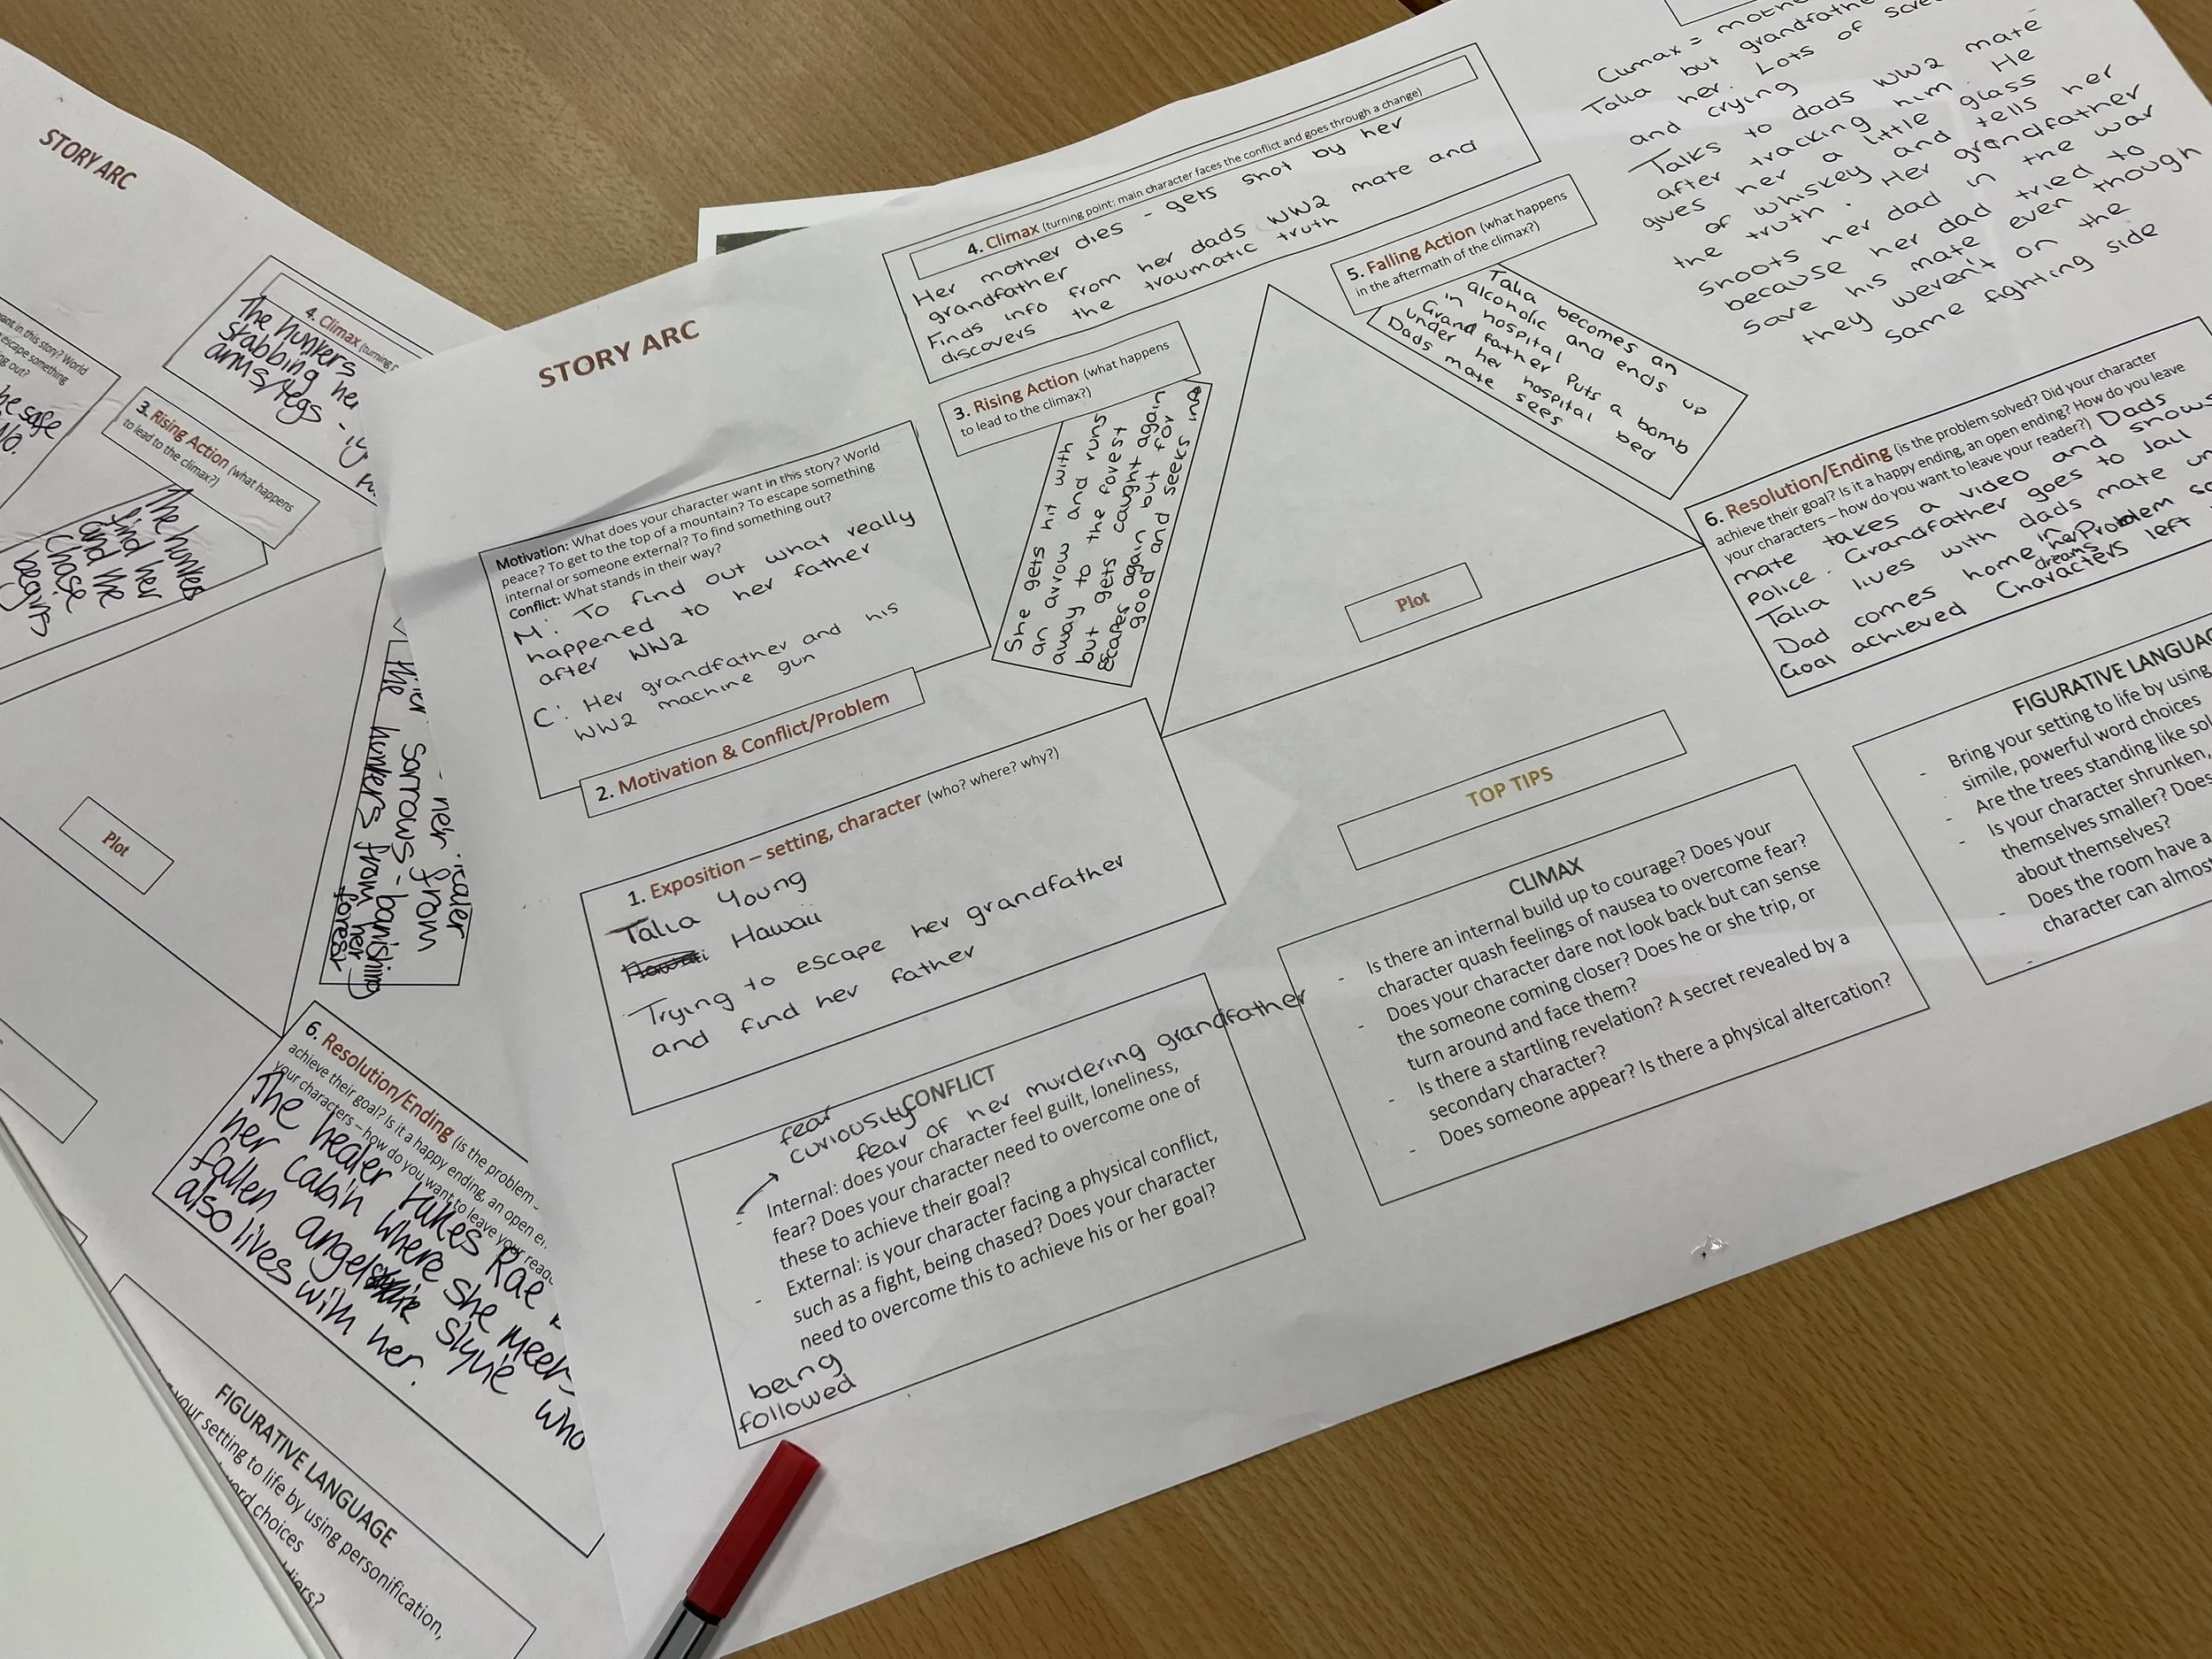 STORY ARC
ant in this story? World
escape something
ng out?
be safe
3. Rising Action (what happens
to lead to the climax?)
The hunters
find her
and the
chase
begins
4. Climax (turning
The hunters
stabbing her
arms/legs
Plot
her healer
sorrows - from
the hunters from her
banishing
forest
6. Resolution/Ending (is the problem
achieve their goal? Is it a happy ending, an open
your characters – how do you want to leave your
The healer takes Rae
her cabin where she meets
fallen angel Slyvie who
also lives with her.
FIGURATIVE LANGUAGE
your setting to life by using personification,
word choices
STORY ARC
Motivation: What does your character want in this story? World
peace? To get to the top of a mountain? To escape something
internal or someone external? To find something out?
Conflict: What stands in their way?
M: To find out what really
happened to her father
after WW2
C: Her grandfather and his
WW2 machine gun
2. Motivation & Conflict/Problem
1. Exposition – setting, character (who? where? why?)
Talia Young
Hawaii Hawaii
Trying to escape her grandfather
and find her father
3. Rising Action (what happens
to lead to the climax?)
She gets hit with
an arrow and runs
away to the forest
but gets caught again
escapes again but for
good and seeks info
4. Climax (turning point: main character faces the conflict and goes through a change)
Her mother dies - gets shot by her
grandfather
Finds info from her dads WW2 mate and
discovers the traumatic truth
5. Falling Action (what happens
in the aftermath of the climax?)
Talia becomes an
alcoholic and ends up
in hospital
Grandfather puts a bomb
under her hospital bed
Dads mate sees
Climax =
Talia but grandfather
her. Lots of
and crying
Talks to dads WW2 mate
after tracking him. He
gives her a little glass
of whiskey and tells her
the truth. Her grandfather
shoots her dad in the war
because her dad tried to
save his mate even though
they weren't on the
same fighting side
6. Resolution/Ending (is the problem solved? Did your character
achieve their goal? Is it a happy ending, an open ending? How do you leave
your characters – how do you want to leave your reader?) Dads
mate takes a video and shows
police. Grandfather goes to jail
Talia lives with dads mate
Dad comes home in her dreams Problem
Goal achieved Characters left
Plot
TOP TIPS
CONFLICT
fear
curiousity
fear of her murdering grandfather
- Internal: does your character feel guilt, loneliness,
fear? Does your character need to overcome one of
these to achieve their goal?
- External: is your character facing a physical conflict,
such as a fight, being chased? Does your character
need to overcome this to achieve his or her goal?
being
followed
CLIMAX
- Is there an internal build up to courage? Does your
character quash feelings of nausea to overcome fear?
- Does your character dare not look back but can sense
the someone coming closer? Does he or she trip, or
turn around and face them?
- Is there a startling revelation? A secret revealed by a
secondary character?
- Does someone appear? Is there a physical altercation?
FIGURATIVE LANGUAGE
- Bring your setting to life by using
simile, powerful word choices
- Are the trees standing like
- Is your character shrunken,
themselves smaller? Does
about themselves?
- Does the room have a
character can almost
-